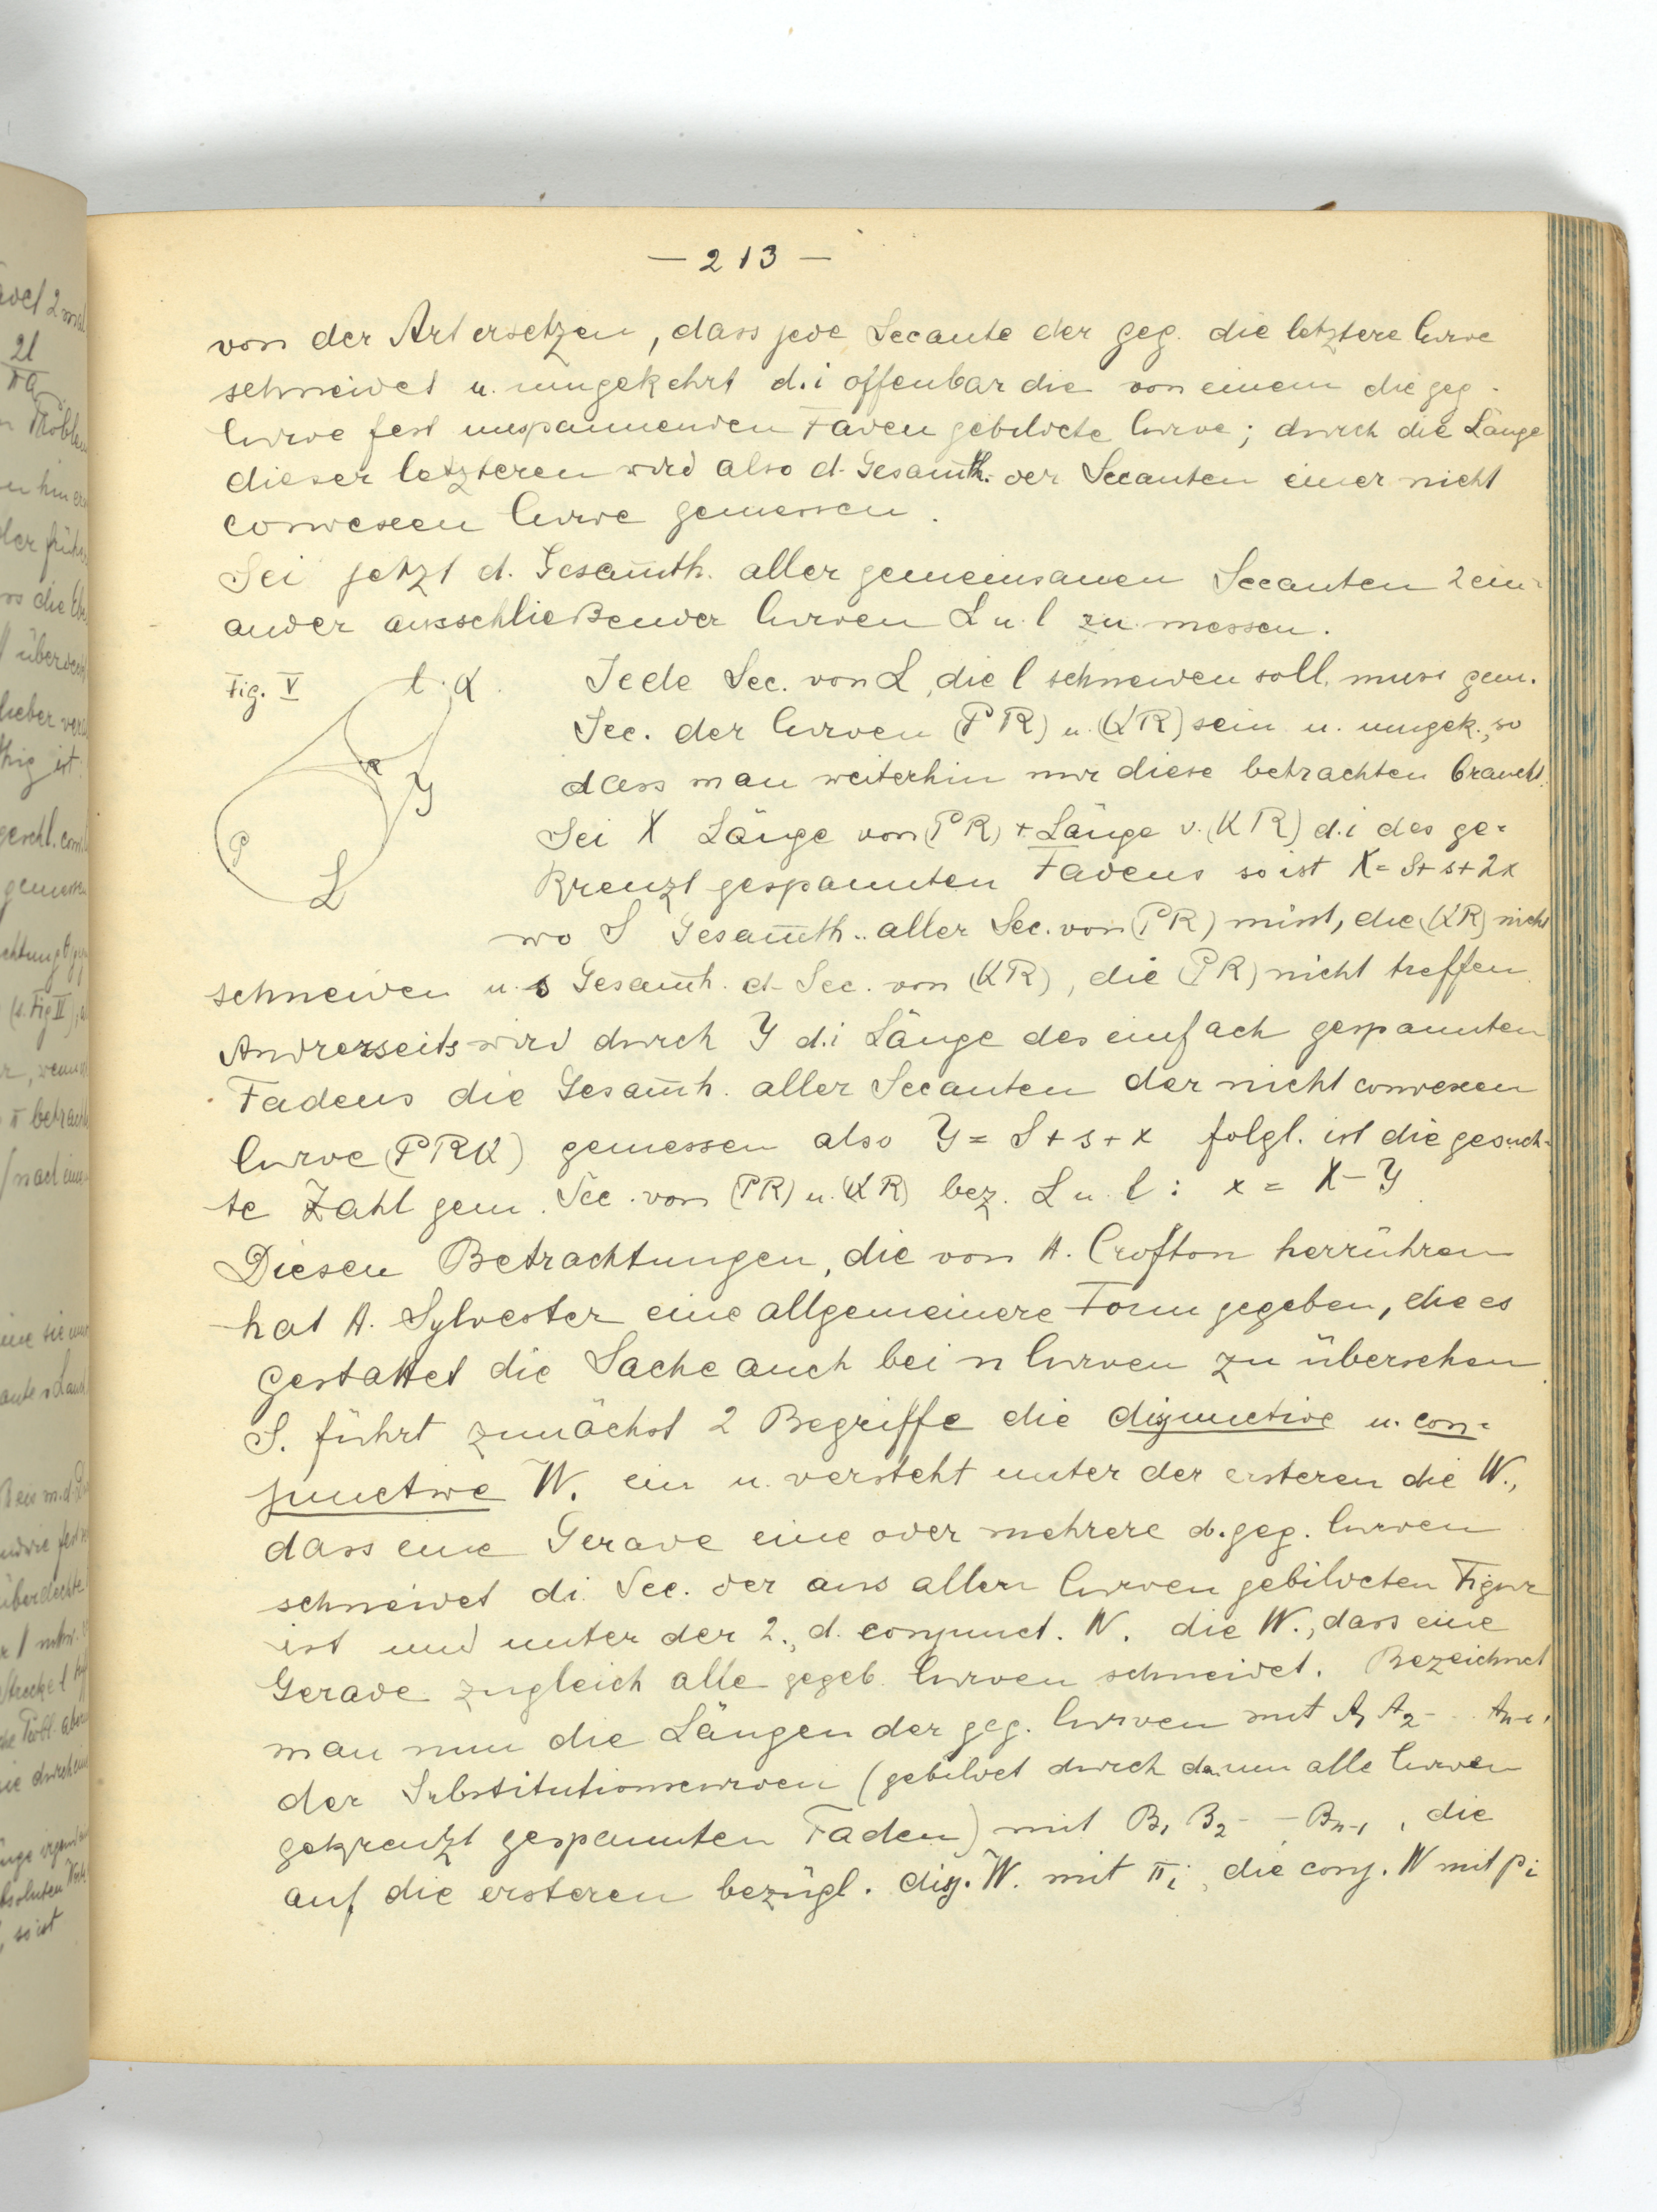 — 213 —
von der Art ersetzen, dass jede Secante der geg. die letztere Curve
schneidet u. umgekehrt d.i offenbar die von einem die geg.
Curve fest umspannenden Faden gebildete Curve; durch die Länge
dieser letzteren wird also d. Gesam̅th. der Secanten einer nicht
convexen Curve gemessen.
Sei jetzt d. Gesam̅th. aller gemeinsamen Secanten 2 ein-
ander ausschließender Curven L u. l zu messen.
Fig. V
l K
R
Y
P
L
Jede Sec. von L, die l schneiden soll, muss gem.
Sec. der Curven (PR) u. (KR) sein u. umgek., so
dass man weiterhin nur diese betrachten braucht.
Sei X Länge von (PR) + Länge v. (KR) d.i des ge-
kreuzt gespannten Fadens so ist X = S + s + 2x
wo S Gesam̅th. aller Sec. von (PR) misst, die (KR) nicht
schneiden u. s Gesam̅th. d. Sec. von (KR), die (PR) nicht treffen.
Andrerseits wird durch Y d.i Länge des einfach gespannten
Fadens die Gesam̅th. aller Secanten der nicht convexen
Curve (PRK) gemessen also Y = S + s + x folgl. ist die gesuch-
te Zahl gem. Sec. von (PR) u. (KR) bez. L u. l : x = X – Y
Diesen Betrachtungen, die von H. Crofton herrühren
hat H. Sylvester eine allgemeinere Form gegeben, die es
gestattet die Sache auch bei n Curven zu übersehen.
S. führt zunächst 2 Begriffe die disjunctive u. con-
junctive W. ein u. versteht unter der ersteren die W.,
dass eine Gerade eine oder mehrere d. geg. Curven
schneidet d.i. Sec. der aus allen Curven gebildeten Figur
ist und unter der 2., d. conjunct. W. die W., dass eine
Gerade zugleich alle gegeb. Curven schneidet. Bezeichnet
man nun die Längen der geg. Curven mit A₁ A₂ - - Aₙ₋₁,
der Substitutionscurven (gebildet durch d. um alle Curven
gekreuzt gespannten Faden) mit B₁ B₂ - - Bₙ₋₁, die
auf die ersteren bezügl. disj. W. mit πᵢ, die conj. W mit pᵢ